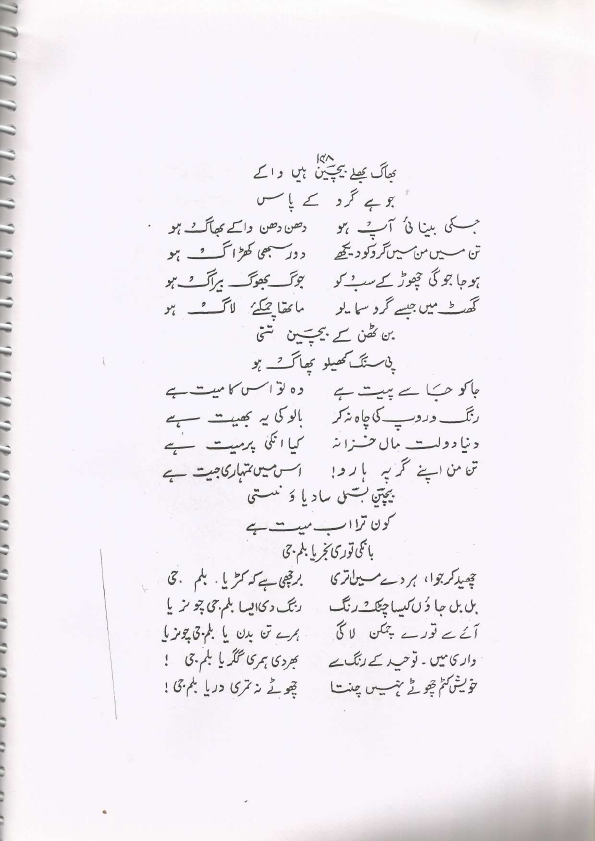 ۱۴۸
بھاگ بھلے بیچین ہیں واکے
جو ہے گرو کے پاس
جسکی بینائی آپ ہو دھن دھن واکے بھاگ ہو
تن میں من میں گرو کو دیکھے دور سبھی کھڑاگ ہو
ہو جا جوگی چھوڑ کے سب کو جوگ بھوگ بیراگ ہو
گھٹ میں جیسے گرو سمایو ماتھا چمکے لاگ ہو
بن ٹھن کے بیچین
پی سنگ کھیلو پھاگ ہو
جا کو جا سے پیت ہے وہ تو اس کا میت ہے
رنگ و روپ کی چاہ نہ کر بالو کی یہ بھیت ہے
دنیا دولت مال خزانہ کیا انکی پرمیت ہے
تن من اپنے گر پہ ہارو! اس میں تمہاری جیت ہے
بیچین
کون ترا اب میت ہے
بانکی توری نجریا بلم جی
چھید کرجوا، ہردے میں اتری برچھی ہے کہ کٹریا۔ بلم جی
بل بل جاؤں کیسا چٹک رنگ رنگ دی ایسا بلم جی چونریا
آئے سے تورے چمکن لاگی ہمرے تن بدن یا بلم جی چونریا
واری میں۔ توحید کے رنگ سے بھردی ہمری گگریا بلم جی !
خویش کٹم چھوٹے نہیں چنتا چھوٹے نہ تمری دریا بلم جی !